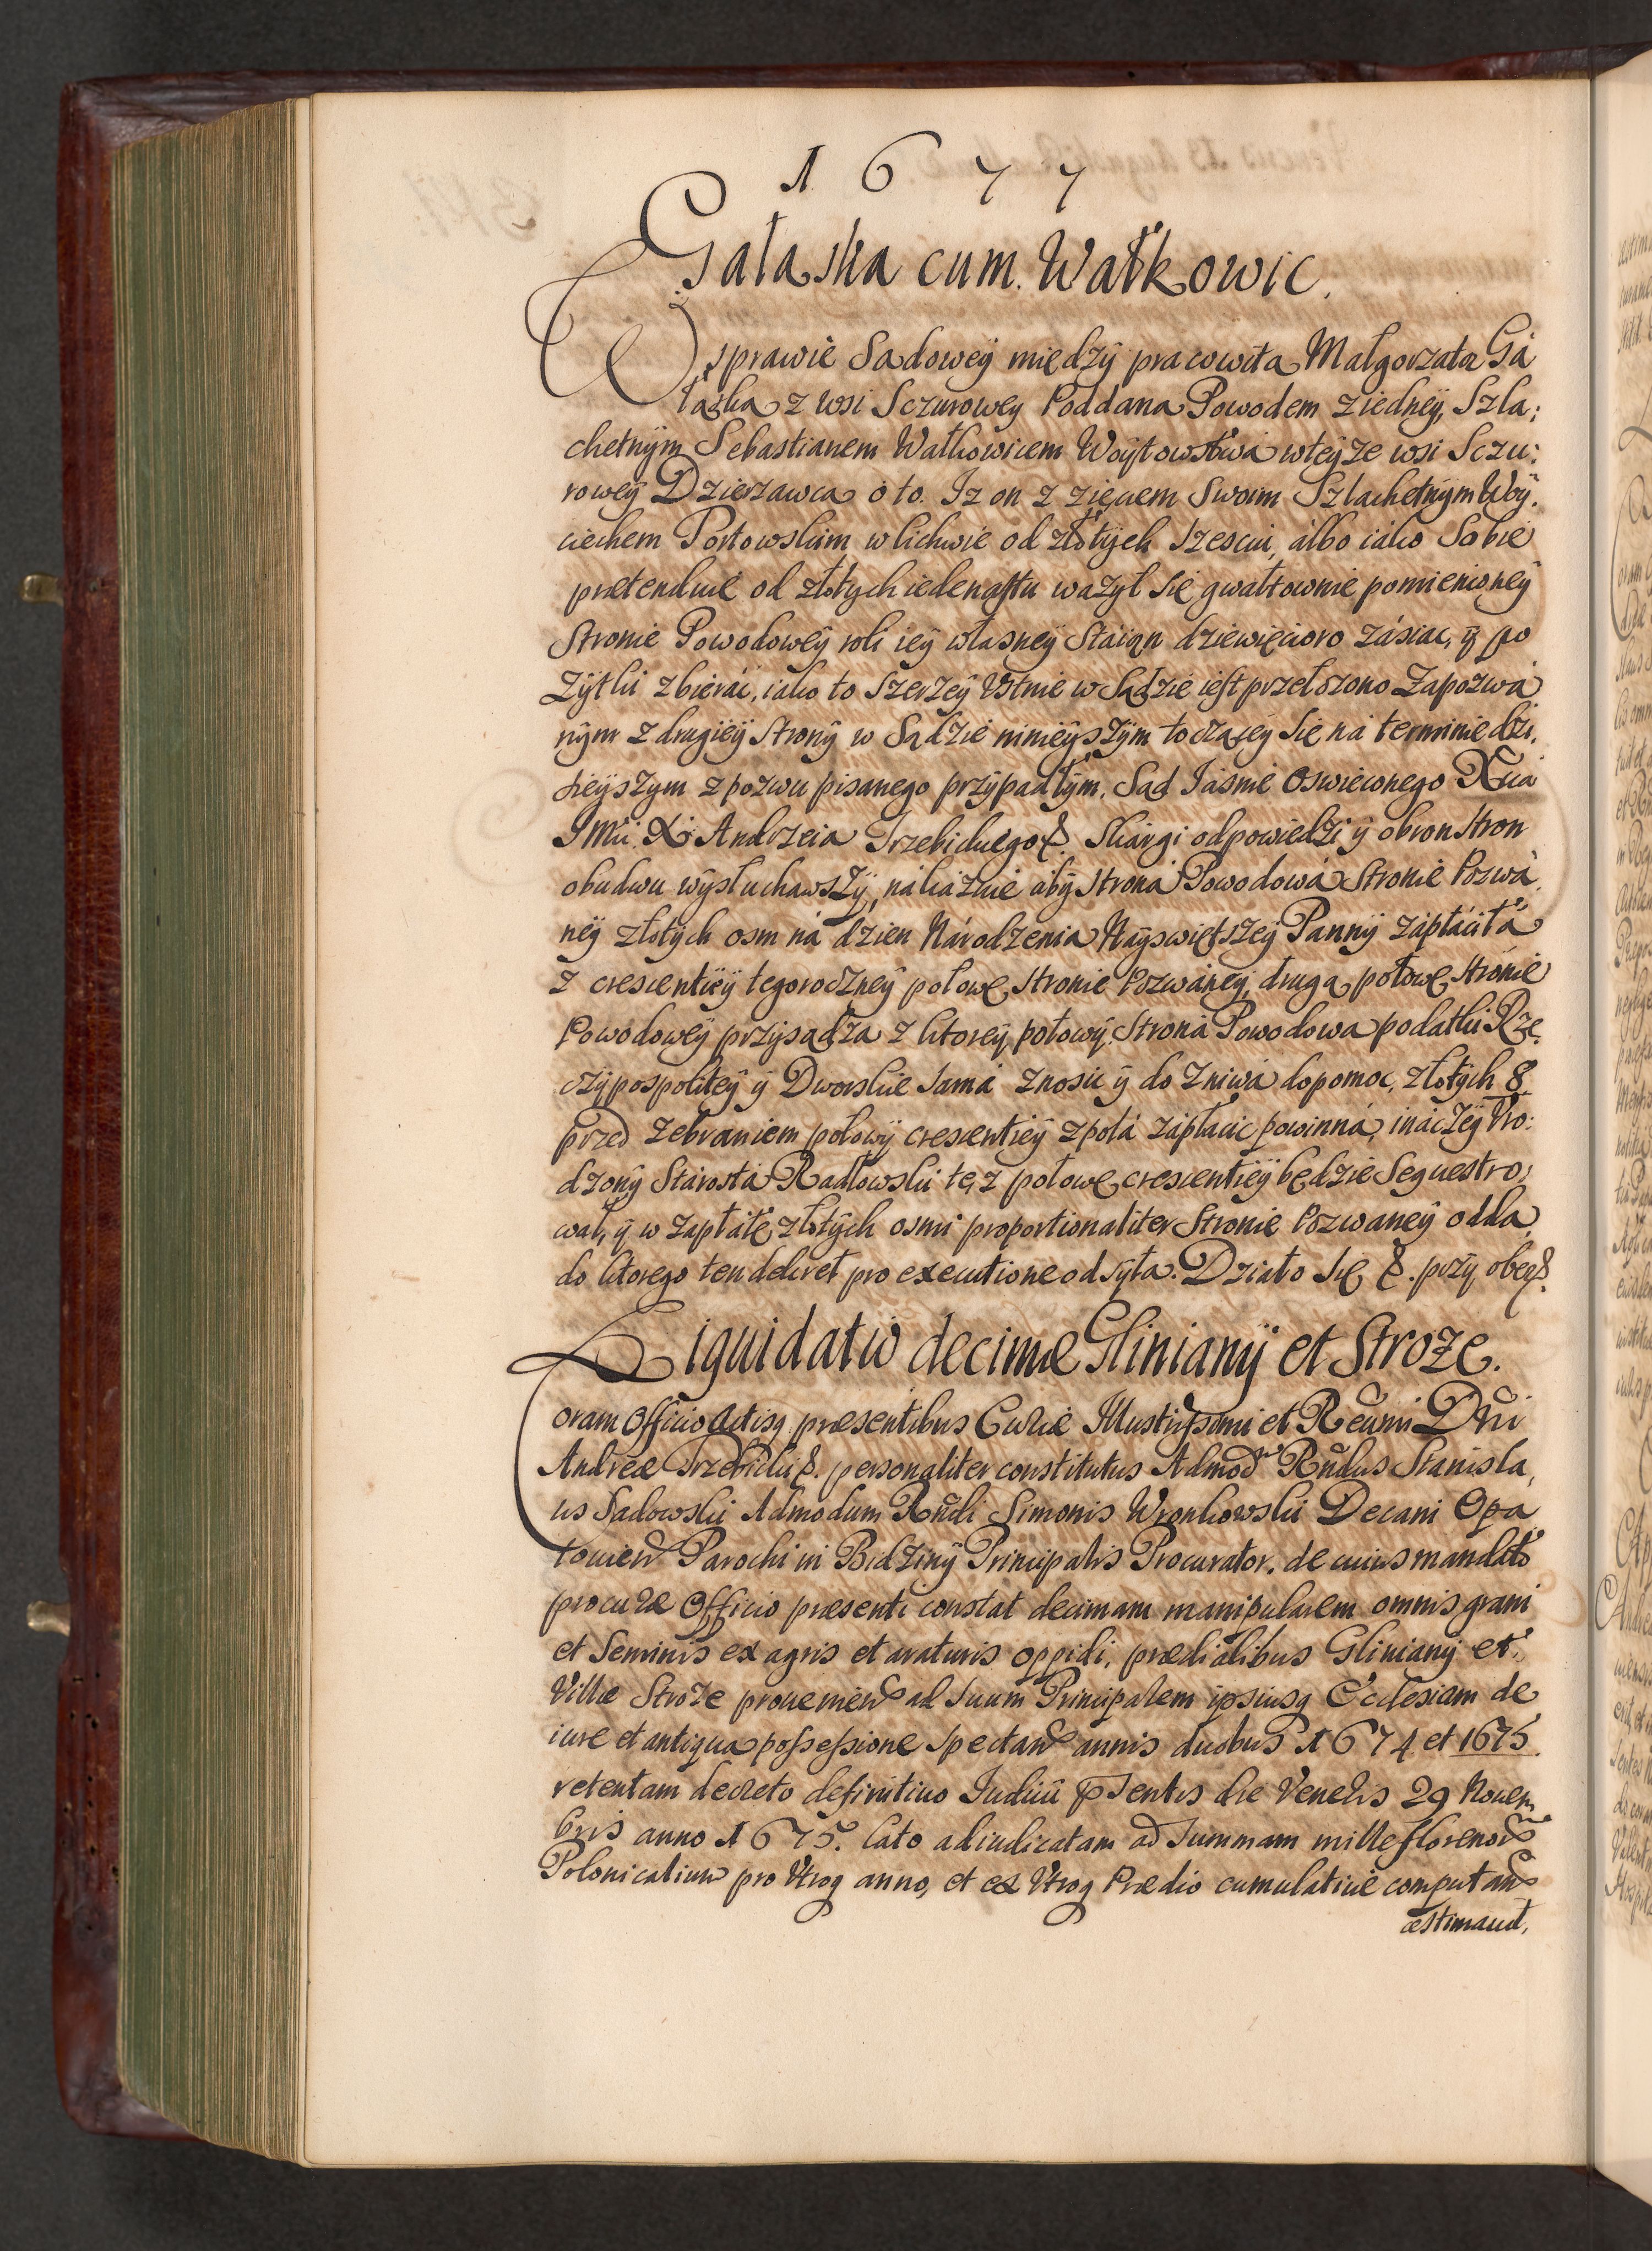 1677
Gałaska cum Wałkowic.
W sprawie Sądowey między pracowitą Małgorzatą Ga
łaską z wsi Sczurowey Poddaną Powodem z iedney, Szla:
chetnym Sebastianem Wałkowicem Woytowstwa wteyże wsi Sczu:
rowey Dzierzawcą o to. Iz on z zięciem Swoim Szlachetnym Woy,
ciechem Porłowskim w lichwie od złotych szesciu, albo iako Sobie
prætenduie od złotych iedenastu ważył się gwałtownie pomienioney
Stronie Powodowey roli iey własney Staian dziewięcioro zásiac, y po
zytki zbierać, iako to szerzey Vstnie w Sądzie iest przełozono Zapozwa
nym z drugiey strony w Sądzie ninieyszym toczącey się na terminie dzi,
sieyszym z pozwu pisanego przypadłym. Sąd Iasnie Oswieconego Xcia
IMci X. Andrzeia Trzebickiego &. Skargi odpowiedzi y obron stron
obudwu wysłuchawszy, nakázuie aby strona Powodowa Stronie Pozwa,
ney złotych osm na dzien Národzenia Nayswiętszey Panny zápłáciłá
z crescentiey tegoroczney połowę stronie Pozwáney, drugą połowę stronie
Powodowey przysądza z ktorey połowy Strona Powodowa podatki Rze,
czypospolitey y Dworskie sama znosic y do zniwa dopomoc, złotych 8
przed zebraniem połowy crescentiey z pola zápłacic powinna, ináczey Vro:
dzony Stárosta Radłowski tęz połowę crescentiey będzie Sequestro:
wał, y w zapłátę złotych osmi proportionaliter Stronie Pozwaney odda,
do ktorego ten dekret pro executione odsyła. Działo się &. przy obec&.
Liquidatio decimæ Gliniany et Stroże.
Coram Officio Actisq præsentibus Curiæ Illustrissimi et Reumi Dni
Andreæ Trzebicki &. personaliter constitutus Admod Rndus Stanisla,
us Sadowski Admodum Rndi Simonis Wronkowski Decani Opa
touien Parochi in Bidziny Principalis Procurator, de cuius mandato
procuræ Officio præsenti constat decimam manipularem omnis grani
et Seminis ex agris et araturis oppidi, prædialibus Gliniany et
Villæ Stroże prouenien ad suum Principalem ipsiusq Ecclesiam de
iure et antiqua possessione spectan annis duobus 1674 et 1675
retentam decreto definitiuo Iudicii psentis die Veneris 29 Nouem
bris anno 1675. lato adiudicatam ad summam mille florenor
Polonicalium pro Vtroq anno, et ex Vtroq Prædio cumulatiue computan
æstimand,